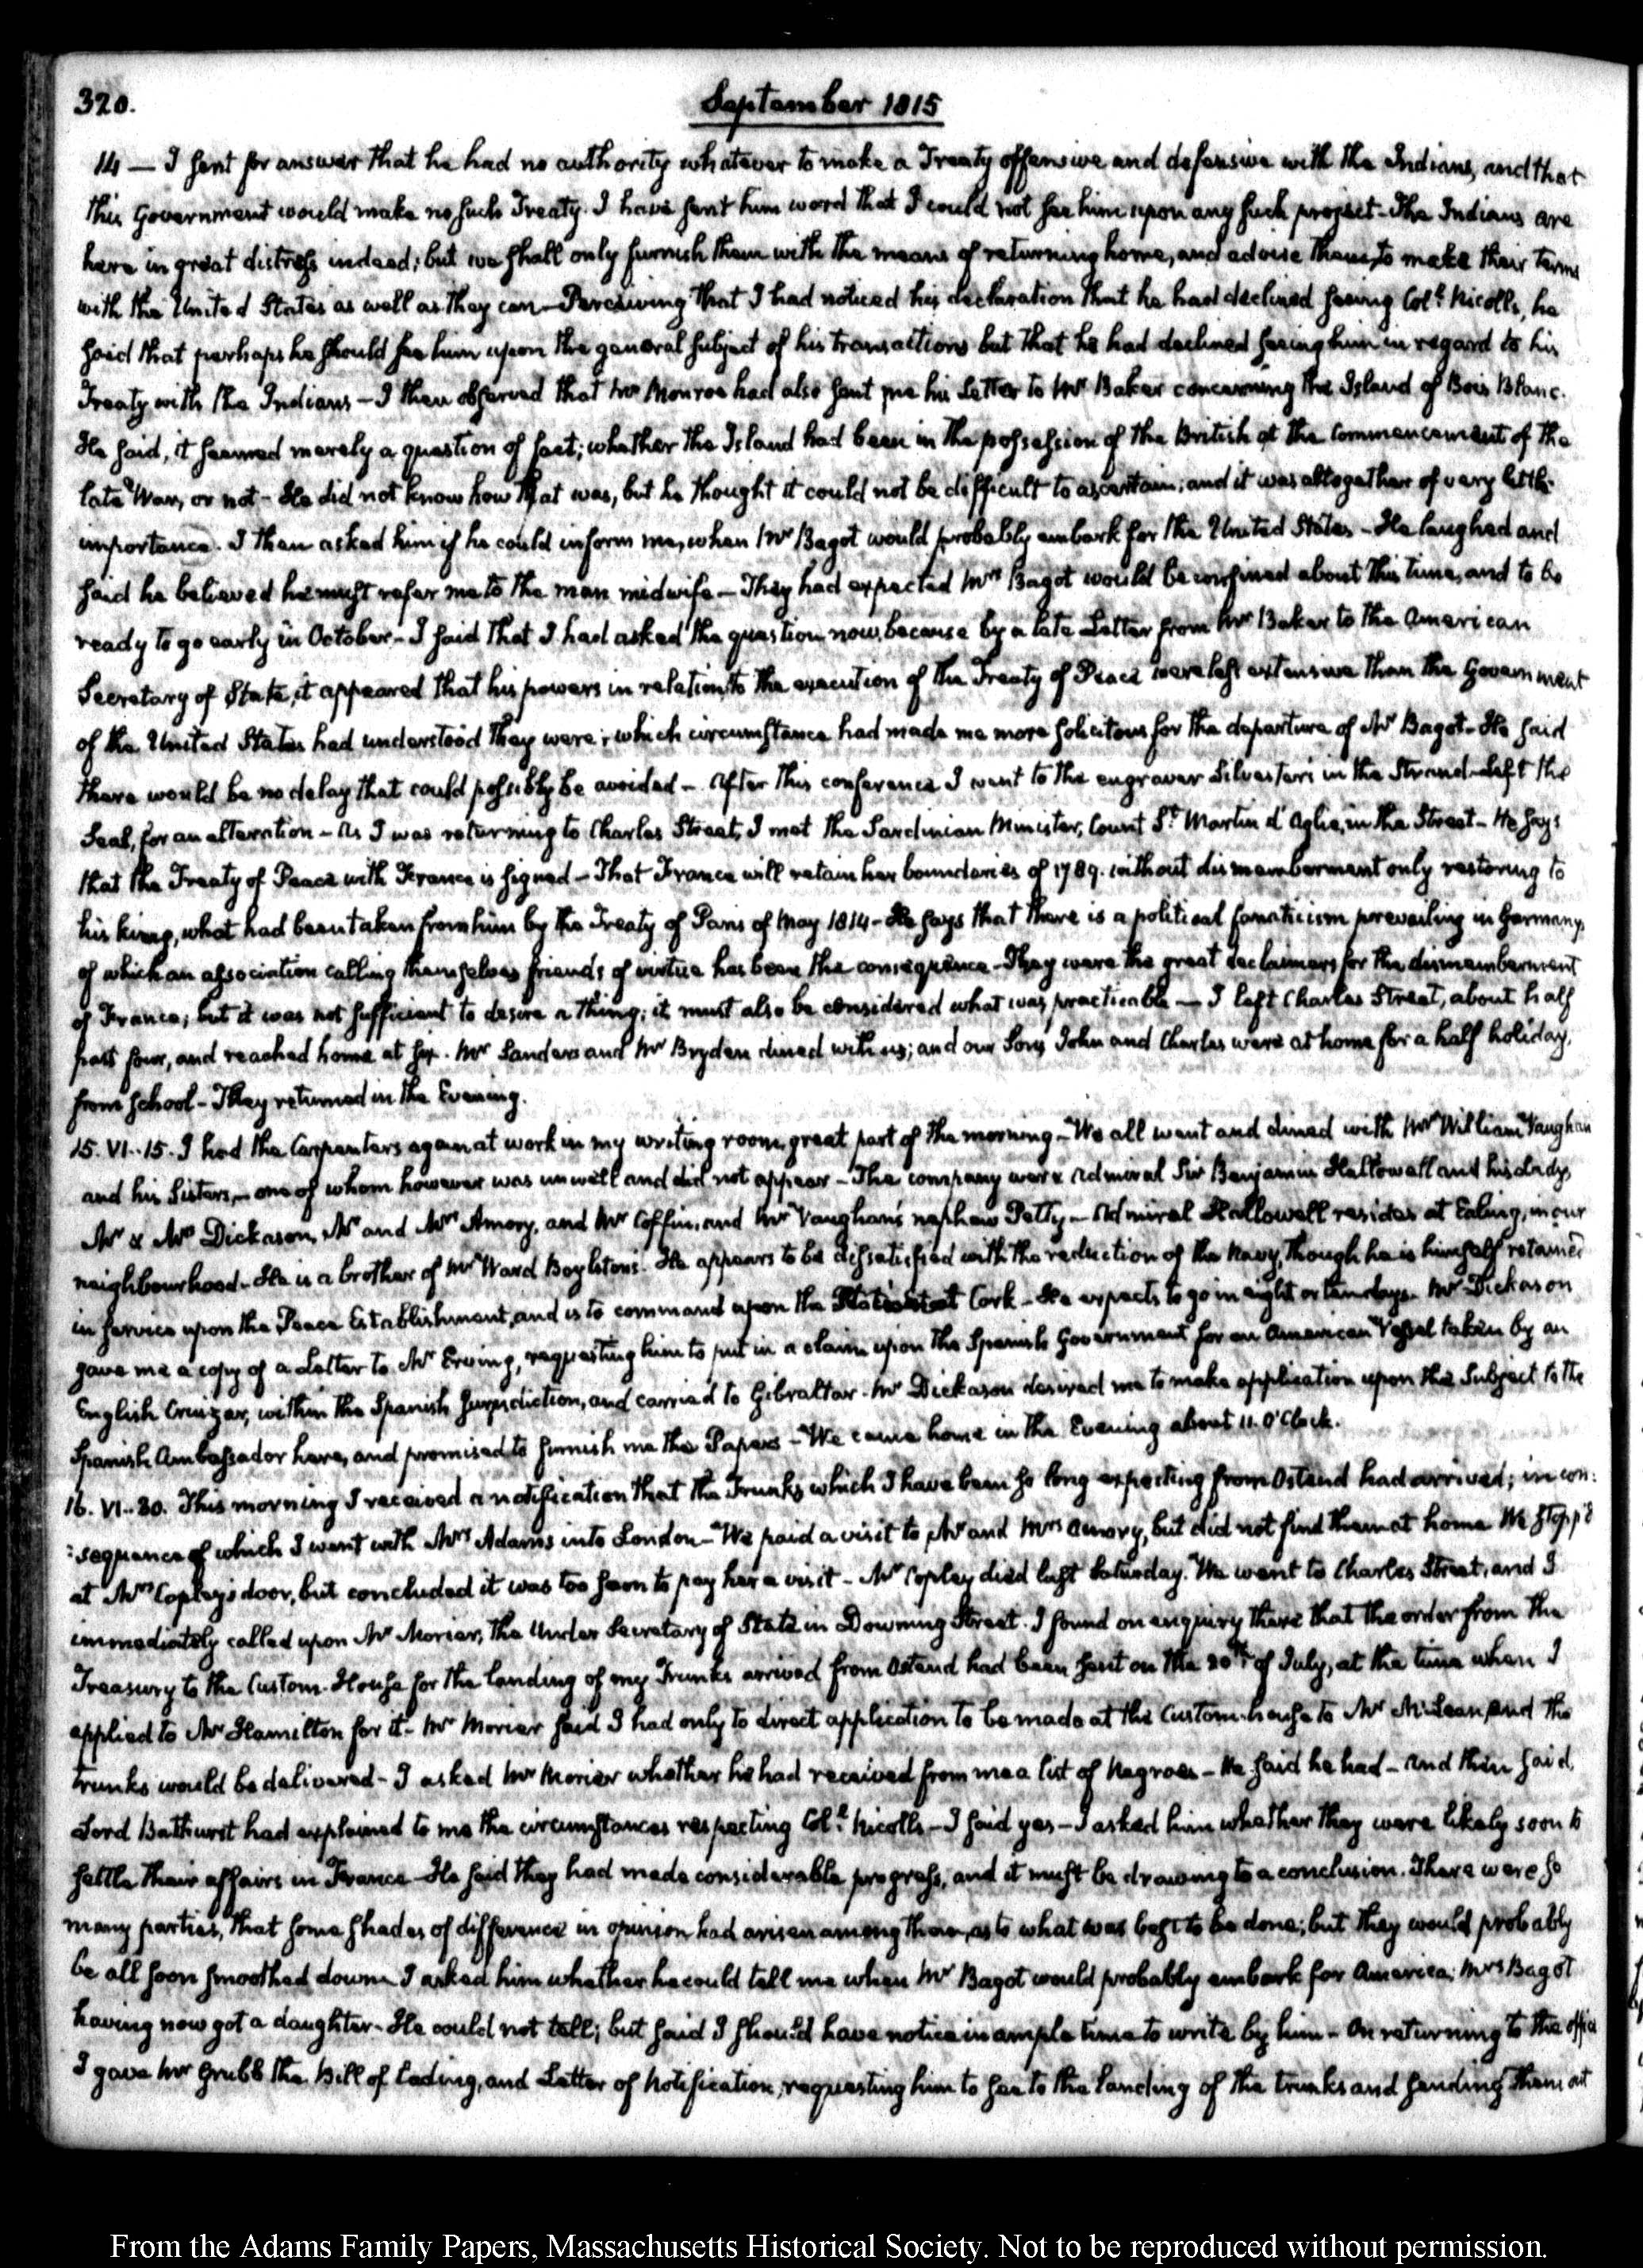 320.
September 1815
14 — I sent for answer that he had no authority whatever to make a Treaty offensive and defensive with the Indians, and that
this Government would make no such Treaty. I have sent him word that I could not see him upon any such project - The Indians are
here in great distress indeed; but we shall only furnish them with the means of returning home, and advise them to make their terms
with the United States as well as they can - Perceiving that I had noticed his declaration that he had declined seeing Col.l Nicolls, he
said that perhaps he should see him upon the general subject of his transactions but that he had declined seeing him in regard to his
Treaty with the Indians - I then observed that Mr Monroe had also sent me his Letter to Mr Baker concerning the Island of Bois Blanc.
He said, it seemed merely a question of fact; whether the Island had been in the possession of the British at the Commencement of the
late War, or not - He did not know how that was, but he thought it could not be difficult to ascertain; and it was altogether of very little
importance. I then asked him if he could inform me, when Mr Bagot would probably embark for the United States - He laughed and
said he believed he must refer me to the man midwife - They had expected Mrs Bagot would be confined about this time, and to be
ready to go early in October - I said that I had asked the question now, because by a late Letter from Mr Baker to the American
Secretary of State, it appeared that his powers in relation to the execution of the Treaty of Peace were less extensive than the Government
of the United States had understood they were; which circumstance had made me more solicitous for the departure of Mr Bagot - He said
there would be no delay that could possibly be avoided - After this conference I went to the engraver Silvester's in the Strand - Left the
Seal, for an alteration - As I was returning to Charles Street, I met the Sardinian Minister, Count St Martin d'Aglie, in the Street - He says
that the Treaty of Peace with France is signed - That France will retain her boundaries of 1789. without dismemberment only restoring to
his king, what had been taken from him by the Treaty of Paris of May 1814 - He says that there is a political fanaticism prevailing in Germany,
of which an association calling themselves friends of virtue has been the consequence - They were the great declaimers for the dismemberment
of France; but it was not sufficient to desire a thing; it must also be considered what was practicable — I left Charles Street, about half
past four, and reached home at six. Mr Sanders and Mr Bryden dined with us; and our Sons John and Charles were at home for a half holiday,
from school - They returned in the Evening.
15. VI..15. I had the Carpenters again at work in my writing room, great part of the morning - We all went and dined with Mr William Vaughan
and his Sisters, - one of whom however was unwell and did not appear - The company were Admiral Sir Benjamin Hallowell and his Lady,
Mr & Mrs Dickason, Mr and Mrs Amory, and Mr Coffin, and Mr Vaughan's nephew Petty - Admiral Hallowell resides at Ealing, in our
neighbourhood - He is a brother of Mr Ward Boylston's - He appears to be dissatisfied with the reduction of the Navy, though he is himself retained
in service upon the Peace Establishment, and is to command upon the Station at Cork - He expects to go in eight or ten days - Mr Dickason
gave me a copy of a Letter to Mr Erving, requesting him to put in a claim upon the Spanish Government for an American Vessel taken by an
English Cruizer, within the Spanish Jurisdiction, and carried to Gibraltar. Mr Dickason desired me to make application upon the Subject to the
Spanish Ambassador here, and promised to furnish me the Papers - We came home in the Evening about 11. O'Clock.
16. VI..30. This morning I received a notification that the Trunks which I have been so long expecting from Ostend had arrived; in con:
:sequence of which I went with Mrs Adams into London - We paid a visit to Mr and Mrs Amory, but did not find them at home We stopp'd
at Mrs Copley's door, but concluded it was too soon to pay her a visit - Mr Copley died last Saturday. We went to Charles Street, and I
immediately called upon Mr Morier, the Under Secretary of State in Downing Street. I found on enquiry there that the order from the
Treasury to the Custom-House for the landing of my Trunks arrived from Ostend had been sent on the 20th of July, at the time when I
applied to Mr Hamilton for it - Mr Morier said I had only to direct application to be made at the Custom-house to Mr McLean, and the
trunks would be delivered - I asked Mr Morier whether he had received from me a list of Negroes - He said he had - and then said,
Lord Bathurst had explained to me the circumstances respecting Col.l Nicolls - I said yes - I asked him whether they were likely soon to
settle their affairs in France - He said they had made considerable progress, and it must be drawing to a conclusion. There were so
many parties, that some shades of difference in opinion had arisen among them, as to what was best to be done; but they would probably
be all soon smoothed down. I asked him whether he could tell me when Mr Bagot would probably embark for America; Mrs Bagot
having now got a daughter - He could not tell; but said I should have notice in ample time to write by him - On returning to the office
I gave Mr Grubb the Bill of Lading, and Letter of Notification, requesting him to see to the landing of the trunks and sending them at
From the Adams Family Papers, Massachusetts Historical Society. Not to be reproduced without permission.